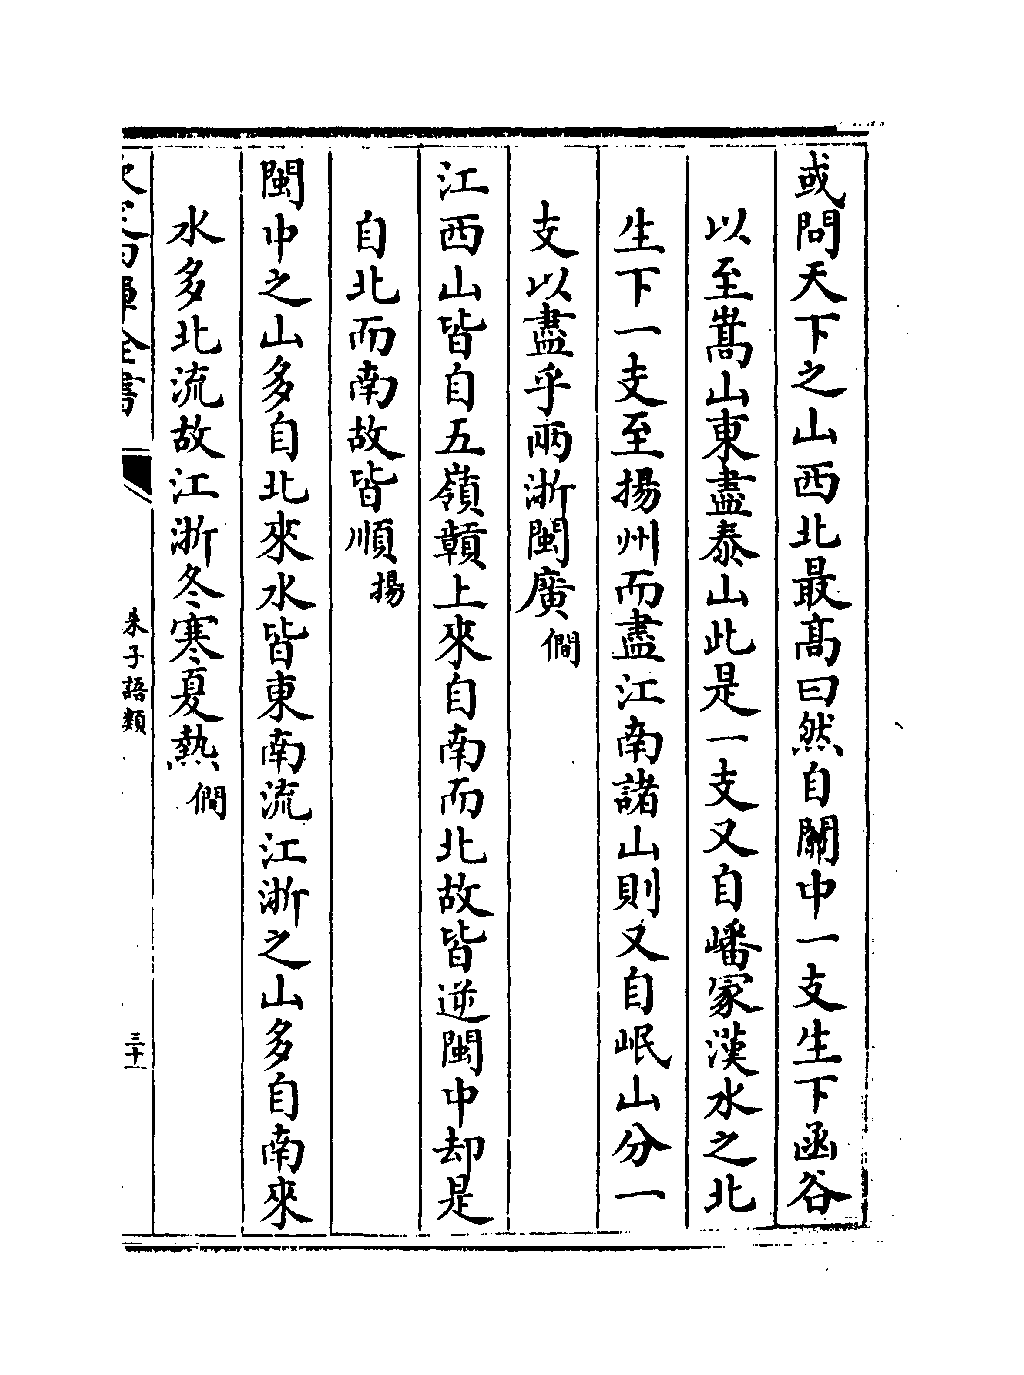 或問天下之山西北最高曰然自關中一支生下函谷
以至嵩山東盡泰山此是一支又自嶓冢漢水之北
生下一支至揚州而盡江南諸山則又自岷山分一
支以盡乎兩浙閩廣僩
江西山皆自五嶺贑上來自南而北故皆逆閩中却是
自北而南故皆順揚
閩中之山多自北來水皆東南流江浙之山多自南來
水多北流故江浙冬寒夏熱僩
欽定四庫全書
朱子語類
三十一